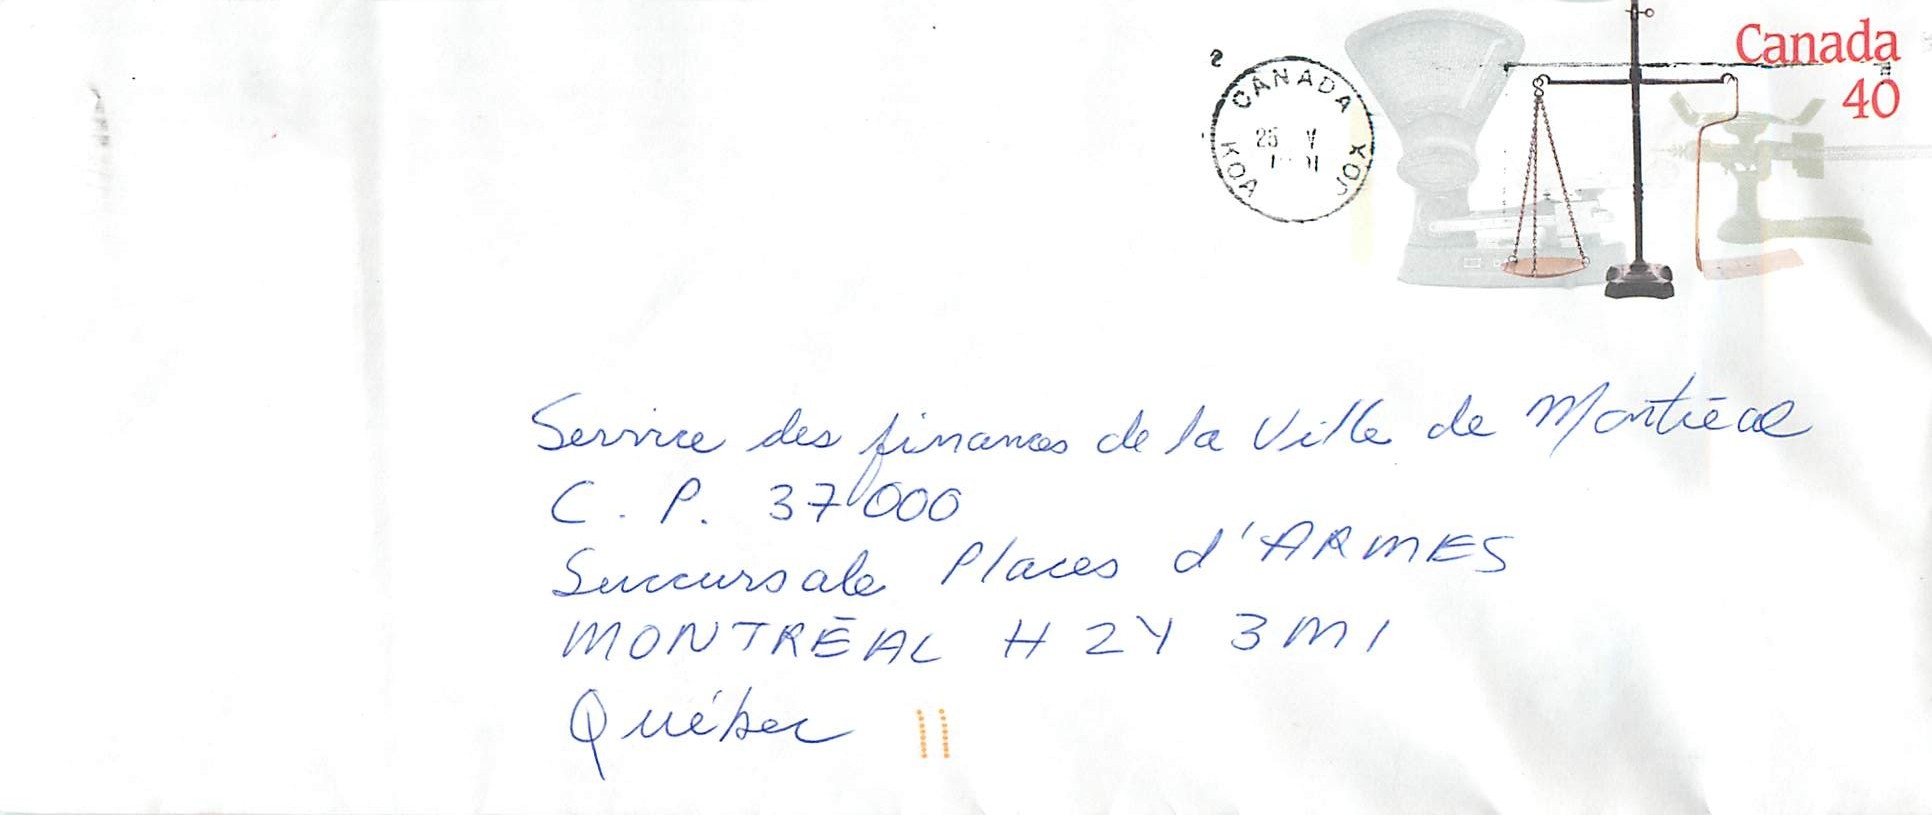 Canada
40
CANADA
25 V
K0A J0X
Service des finances de la Ville de Montréal
C. P. 37000
Succursale Places d'ARMES
MONTRÉAL H2Y 3M1
Québec